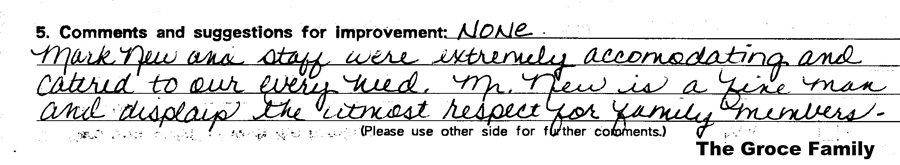 5. Comments and suggestions for improvement: NONE.
Mark New and staff were extremely accomodating and
catered to our every need. Mr. New is a fine man
and displays the utmost respect for family members.
(Please use other side for further comments.)
The Groce Family